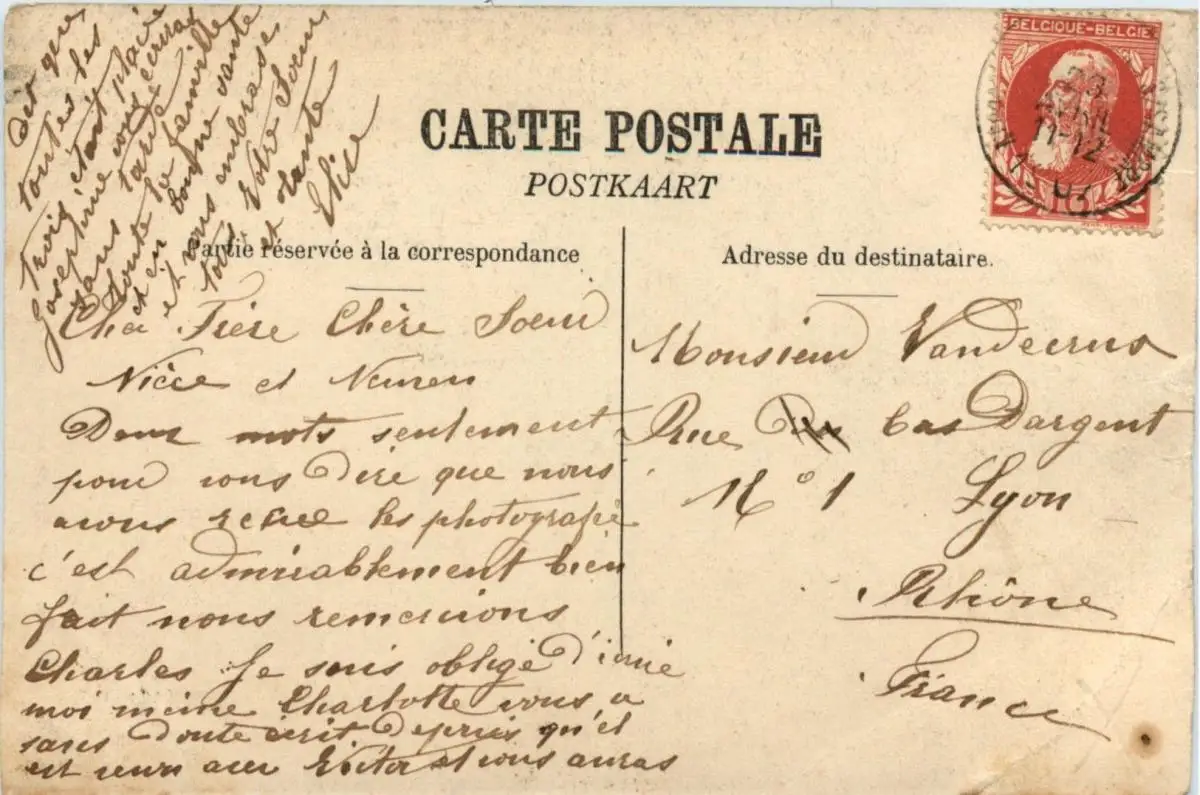 BELGIQUE-BELGIE
10
CARTE POSTALE
POSTKAART
Partie réservée à la correspondance
Adresse du destinataire.
Cher Frère Chère Soeur
Nièce et Neuveu
Deux mots seulement
pour vous dire que nous
avons recue les photografie
c'est admirablement bien
fait nous remercions
Charles Je suis obligé d'
moi meme Charlotte vous a
sans doute écrit depuis qu'el
est venu avec Victor et vous auras
dit que
toutes les
trois étant
Josephine vous
sans tardé
toute la famille
et en bonne santé
et vous embrasse
tous Votre Soeur
et tante
Elise
Monsieur Vandecrux
Rue bas Dargent
No 1 Lyon
Rhône
France